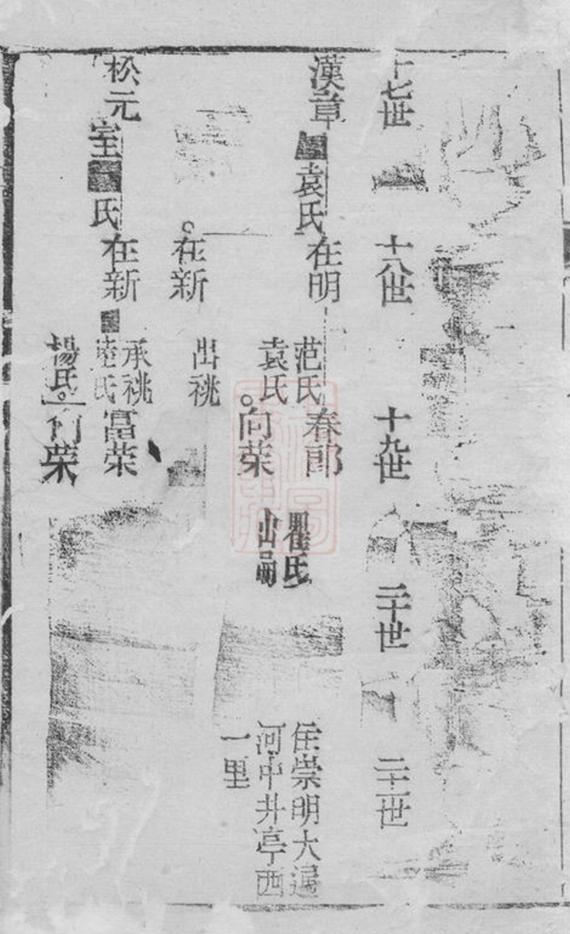 十七世 十八世 十九世 二十世 二十一世
漢章 袁氏 在明 范氏 春郎 瞿氏 住崇明大
袁氏 向荣 出嗣 河中井亭西
一里
在新 出祧
松元 室 氏 在新 承祧 陸氏 富荣
楊氏 向荣